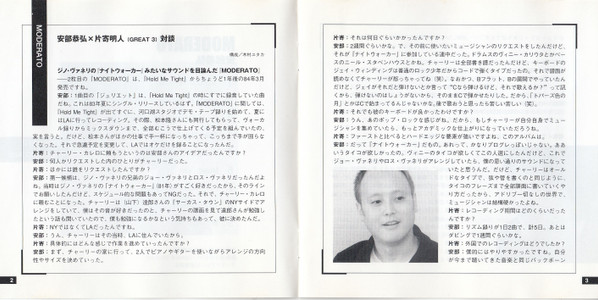 MODERATO
安部恭弘×片寄明人 (GREAT 3) 対談
構成／木村ユタカ
ジノ・ヴァネリの『ナイトウォーカー』みたいなサウンドを目論んだ『MODERATO』
——2枚目の『MODERATO』は、『Hold Me Tight』からちょうど1年後の84年3月
発売ですね。
安部：1曲目の「ジュリエット」は、『Hold Me Tight』の時にすでに録音していた曲
だね。これは83年夏にシングル・リリースしているはず。『MODERATO』に関しては、
『Hold Me Tight』が出てすぐに、河口湖スタジオでデモ・テープ録りを始めて、夏に
はLAに行ってレコーディング。その間、松本隆さんにも同行してもらって、ヴォーカ
ル録りからミックスダウンまで、全部むこうで仕上げてくる予定を組んでいたの。
実を言うと。だけど、松本さんがほかの仕事で手一杯になっちゃって、こっちまで手が回らな
くなった。それで急遽予定を変更して、LAではオケだけを録ることになったんだ。
片寄：チャーリー・カレロに頼もうというのは安部さんのアイデアだったんですか？
安部：何人かリクエストした内のひとりがチャーリーだった。
片寄：ほかには誰をリクエストしたんですか？
安部：第一候補は、ジノ・ヴァネリの兄弟のジョー・ヴァネリとロス・ヴァネリだったんだよ
ね。当時はジノ・ヴァネリの『ナイトウォーカー』（81年）がすごく好きだったから、そのライン
でお願いしたんだけど、スケジュールの問題もあってNGだった。それで、チャーリー・カレロ
に頼むことになった。チャーリーは（山下）達郎さんの『サーカス・タウン』のNYサイドでア
レンジをしていて、僕はその音が好きだったのと、チャーリーの譜面を見て達郎さんが勉強し
たという話も聞いていたので、僕も勉強になるかなという気持ちもあって、彼に決めたんだ。
片寄：NYではなくてLAだったんですね。
安部：うん、チャーリーはその当時、LAに住んでいたから。
片寄：具体的にはどんな感じで作業を進めていったんですか？
安部：まず、チャーリーの家に行って、2人でピアノやギターを使いながらアレンジの方向
性やサイズを決めていった。
2
片寄：それは何日ぐらいかかったんですか？
安部：2週間ぐらいかな。で、その時に使いたいミュージシャンのリクエストをしたんだけど、
それが『ナイトウォーカー』に参加している連中だった。ドラムスのヴィニー・カリウタとかベー
スのニール・スタベンハウスとかね。チャーリーは全部書き譜だったんだけど、キーボードの
ジェイ・ウィンディングは普通のロック少年だからコードで弾くタイプだったの。それで譜面が
読めなくてチャーリーが怒っちゃってね（笑）。なおかつ、Bフラット、Bの展開でやっていたん
だけど、ジェイがそれだと弾けないとか言って“Cなら弾けるけど、それで歌えるか？”って話
になった。弾けないのはしょうがないから、そのままCで弾かせたりしたから、「トパーズ色の
月」とかはCで始まってるんじゃないかな。後で歌おうと思ったら苦しい苦しい（笑）。
片寄：それでも彼のキーボードが良かったわけですか？
安部：うん、あのポップ、ロックな感じが合う。だから、もしチャーリーが自分自身でミュー
ジシャンを集めていたら、もっとアカデミックな仕上がりになっていただろうね。
片寄：ファーストと比べるとハードエッジな要素が強いですよね、このアルバムは。
安部：だって『ナイトウォーカー』だもの。あれって、かなりプログレっぽいじゃない。ああ
いうタイコが欲しかったの。ヴィニーのタイコが欲しくてこの人選にしたんだけど、これで
ジョー・ヴァネリやロス・ヴァネリがアレンジしていたら、僕の思い通りのサウンドになって
いたと思うんだ。だけど、チャーリーはオール
ドなタイプで、弦や管を書くのと同じように、
タイコのフレーズまで全部譜面に書いていくや
り方だったから、アドリブ一切なしの世界で、
ミュージシャンは結構嫌かったよね。
片寄：レコーディング期間はどのぐらいだった
んですか？
安部：リズム録りが1日2曲で、計5日。あとは
ダビングで1週間ぐらいかな。
片寄：外国でのレコーディングはどうでしたか？
安部：僕的にはやりやすかったですね。自分
が今まで聴いてきた音楽と同じバックボーン
3